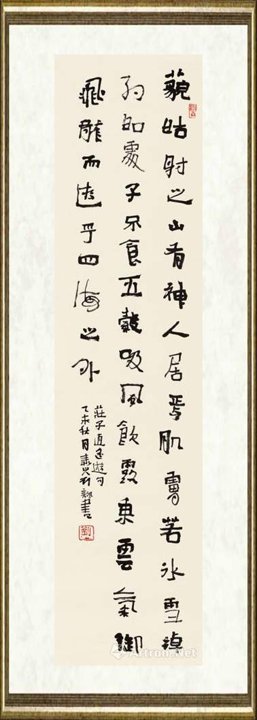 藐姑射之山有神人居焉肌膚若冰雪淖
約如處子不食五穀吸風飲露乘雲氣御
飛龍而遊乎四海之外
莊子逍遙遊句
乙未秋月